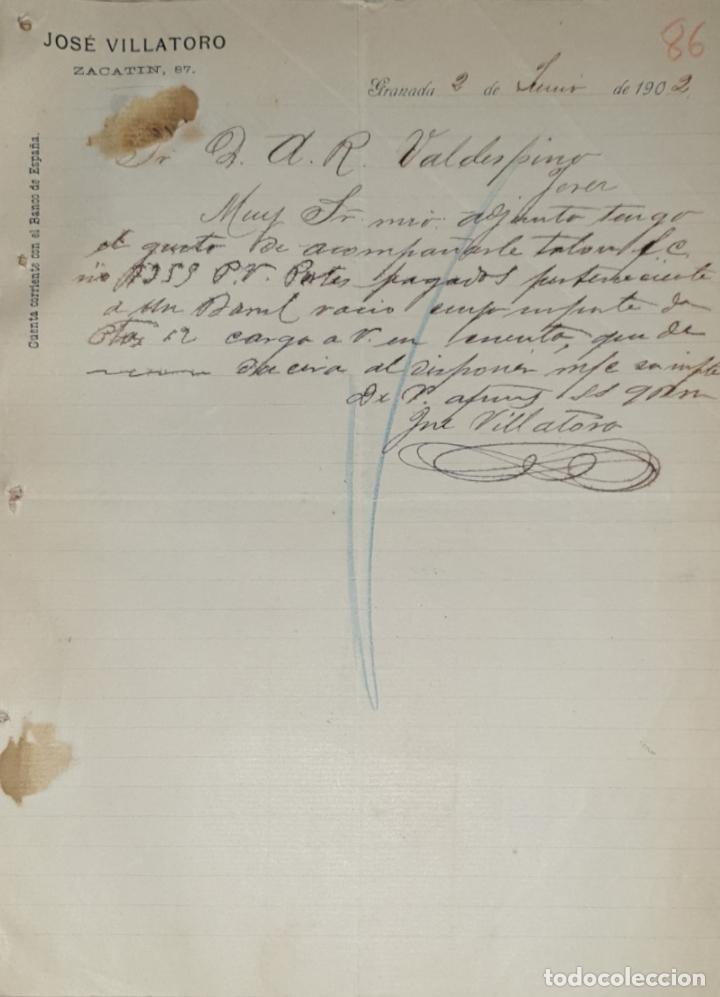 86
JOSÉ VILLATORO
ZACATIN, 87.
Cuenta corriente con el Banco de España.
Granada 2 de Junio de 1902
Sr D. A. R. Valdespino
Jerez
Muy Sr mio: adjunto tengo
el gusto de acompañarle talon f. c.
nº 1359 P.V. Portes pagados perteneciente
a un Barril vacio cuyo importe de
Ptas 12 cargo a V. en cuenta, que de
al disponer
De V. afmo ss
José Villatoro
todocoleccion
todocoleccion.net